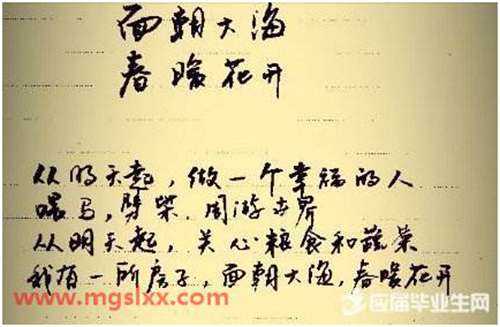 面朝大海
春暖花开
从明天起，做一个幸福的人
喂马，劈柴，周游世界
从明天起，关心粮食和蔬菜
我有一所房子，面朝大海，春暖花开
www.mgslxx.com
应届毕业生网